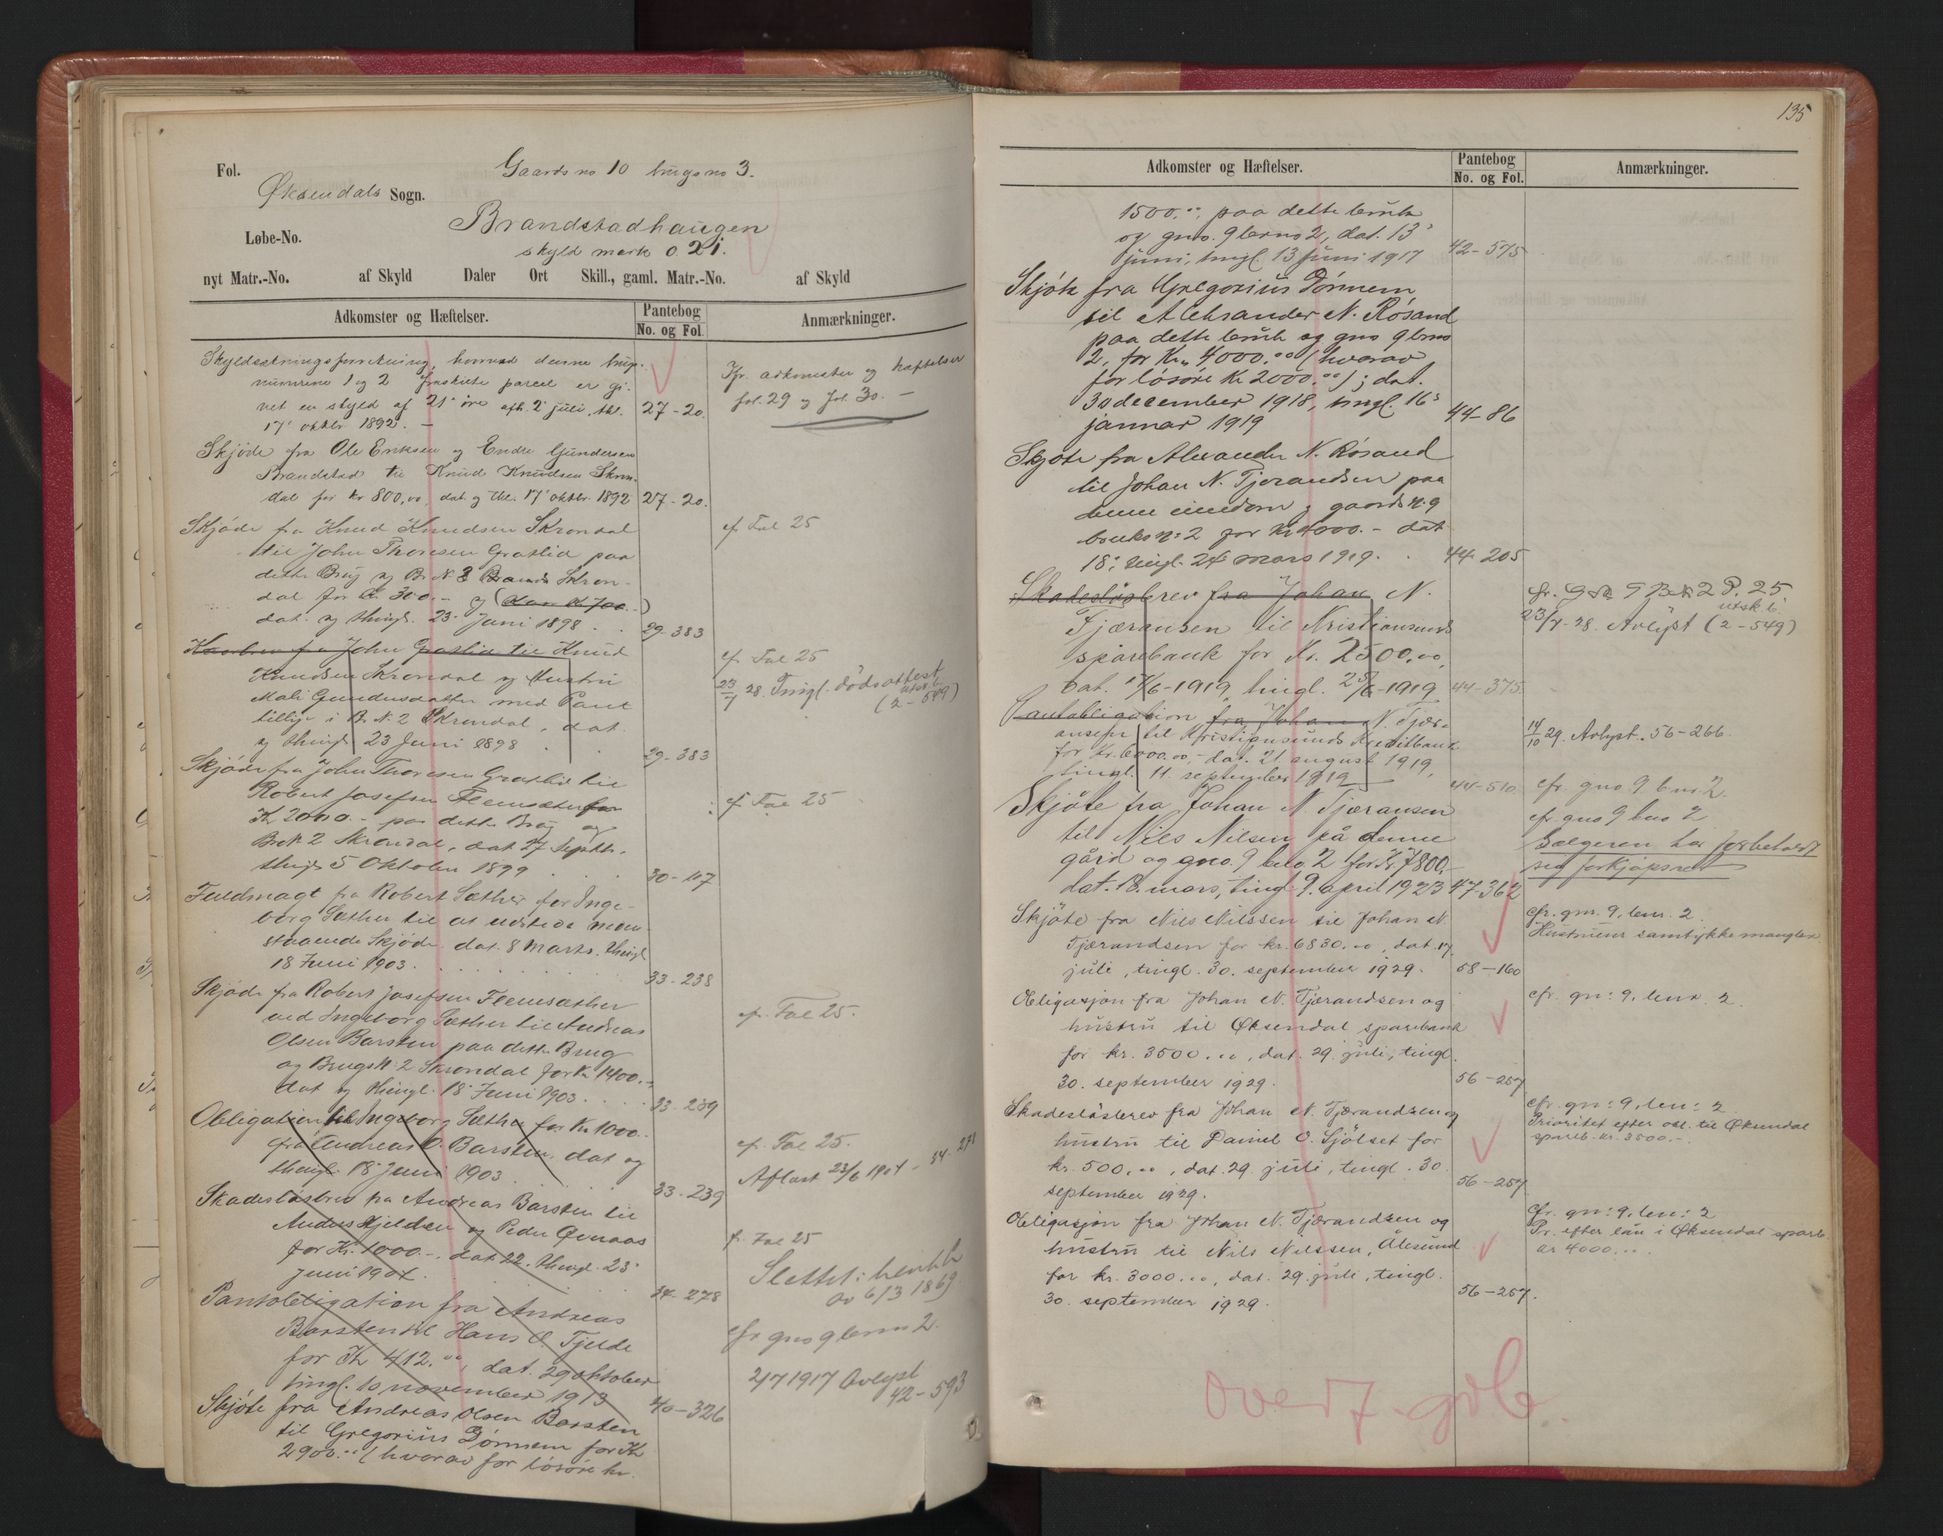 Fol.
Gaards no 10 brugs no 3.
Øksendals Sogn.
Løbe-No.
Brandstadhaugen
skyld mark 0.21.
nyt Matr.-No. af Skyld Daler Ort Skill., gaml. Matr.-No. af Skyld
Adkomster og Hæftelser.
Pantebog
No. og Fol.
Anmærkninger.
Skyldsætningsforretning, hvorved denne brug
numrene 1 og 2 fraskilte parcel er gi-
vet en skyld af 21 øre afh. 2 juli, thl.
17 oktbr 1892. — 27-20.
Kfr. adkomster og hæftelser
fol. 29 og fol. 30. —
Skjøde fra Ole Eriksen og Endre Gundersen
Brandstad til Knud Knudsen Skron-
dal for kr 800,00, dat og thl. 17 oktbr. 1892 27-20.
Skjøde fra Knud Knudsen Skrondal
til John Thoresen Graslid paa
dette Brug og B. N. 2 Skron-
dal for K. 300.- og
dat. og thingl. 23 Juni 1898 . . 29-383
cf Fol 25
fra John Graslid til Knud
Knudsen Skrondal og Hustru
Mali Gundersdatter med Pant
tillige i B. N. 2 Skrondal, dat.
og thingl 23 Juni 1898 . . 29-383
cf Fol 25
23/7 28. Tingl. dødsattest
(2-549)
Skjøde fra John Thoresen Graslid til
Robert Josefsen Flemsæter for
Kr 2000.- paa dette Brug og
Br. N 2 Skrondal, dat 27 Septbr.
thingl 5 Oktober 1899 . . . 30-117
cf Fol 25
Fuldmagt fra Robert Sæther for Inge-
borg Sæther til at udstede neden-
staaende Skjøde dat. 8 Marts. thingl
18 Juni 1903. . . . . 33-238
Skjøde fra Robert Josefsen Flemsæther
ved Ingeborg Sæther til Andreas
Olsen Barsten paa dette Brug
og Brugs N. 2 Skrondal for Kr 1400.-
dat og thingl. 18 Juni 1903. . . . 33-239
cf. Fol 25.
Obligation til Ingeborg Sæther for Kr 1000.-
fra Andreas O. Barsten, dat og
thingl. 18 Juni 1903. 33-239
cf. Fol 25.
Aflæst 23/6 1904 - 34-278
Skadesløsbrev fra Andreas Barsten til
Anders Kjeldsen og Peder Ørnaas
for Kr. 1000.-, dat 22. thingl. 23
juni 1904. 34-278
cf. Fol 25
Slettet i henh. lov
av 6/3 1869
Pantobligation fra Andreas
Barsten til Hans O. Tjelde
for Kr 412.00, dat. 29 oktober
tingl. 10 november 1913 40-326
cfr gno 9 brno 2.
2/7 1917 Avlyst
42-593
Skjøte fra Andreas Olsen Barsten
til Gregorius Dørnem for Kr
2900.00 (hvorav for løsøre kr.
135
Adkomster og Hæftelser.
Pantebog
No. og Fol.
Anmærkninger.
1500.00, paa dette bruk
og gno. 9 brno 2, dat. 13
juni, tingl. 13 juni 1917 42-575
Skjøte fra Gregorius Dørnem
til Aleksander N. Røsand
paa dette bruk og gno 9 brno
2, for Kr. 4000.00 (hvorav
for løsøre Kr 2000.00); dat.
30 december 1918, tingl. 16
januar 1919 44-86
Skjøte fra Alexander N. Røsand
til Johan N. Tjerandsen paa
denne eiendom og gaards n: 9
bruks n: 2 for Kr 4000.- dat
18, tingl. 24 mars 1919. . 44-205
Skadesløsbrev fra Johan N.
Tjæransen til Kristiansunds
sparebank for Kr. 2500.00,
dat. /6-1919, tingl. 25/6-1919 44-375.
cfr. G No 9 B No 2 P. 25.
utsk. b.
23/7-28. Avlyst (2-549)
Pantobligation fra Johan N. Tjær-
ansen til Kristiansunds Kreditbank
for Kr. 6000.00, dat. 21 august 1919,
tingl. 11. september 1919 44-510.
14/10 29. Avlyst. 56-266.
cfr. gno 9 bno 2.
Skjøte fra Johan N. Tjæransen
til Nils Nilsen på denne
gård og gno. 9 bno 2 for Kr 7800,-
dat. 18. mars, tingl. 9. april 1923 47-362
cfr. gno 9 bno 2
Sælgeren har forbeholdt
sig forkjøpsret
Skjøte fra Nils Nilssen til Johan N.
Tjærandsen for kr. 6830.00, dat. 17.
juli, tingl. 30. september 1929. 58-160
cfr. gnr. 9, bnr. 2.
Hustruens samtykke mangler.
Obligasjon fra Johan N. Tjærandsen og
hustru til Øksendal sparebank
for kr. 3500.00, dat. 29. juli, tingl.
30. september 1929. 56-257
cfr. gn: 9, bnr. 2.
Skadesløsbrev fra Johan N. Tjærandsen og
hustru til Daniel O. Sjølset for
kr. 500.00, dat. 29. juli, tingl. 30.
september 1929. 56-257
cfr. gn: 9, bn: 2
Prioritet efter obl. til Øksendal
spareb. kr. 3500.-.
Obligasjon fra Johan N. Tjærandsen og
hustru til Nils Nilssen, Ålesund
for kr. 3000.00, dat. 29. juli, tingl.
30. september 1929. 56-257.
cfr. gn: 9, bn: 2
Pr. efter lån i Øksendal spareb
kr 4000.00.
over 7. gdb.